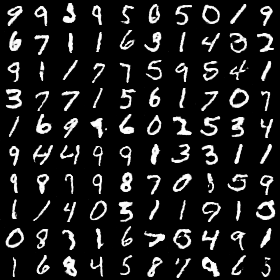 9 9 3 9 5 0 5 0 1 9
6 7 1 1 6 3 1 4 3 2
9 1 1 7 7 5 9 5 4 1
3 7 7 1 5 6 1 7 0 7
1 6 9 9 6 0 2 5 3 4
9 4 4 9 9 1 3 3 1 1
9 8 7 9 8 7 0 1 5 9
1 1 4 0 3 1 1 9 1 3
0 8 3 1 6 7 5 4 9 1
1 6 8 4 5 8 7 9 6 3